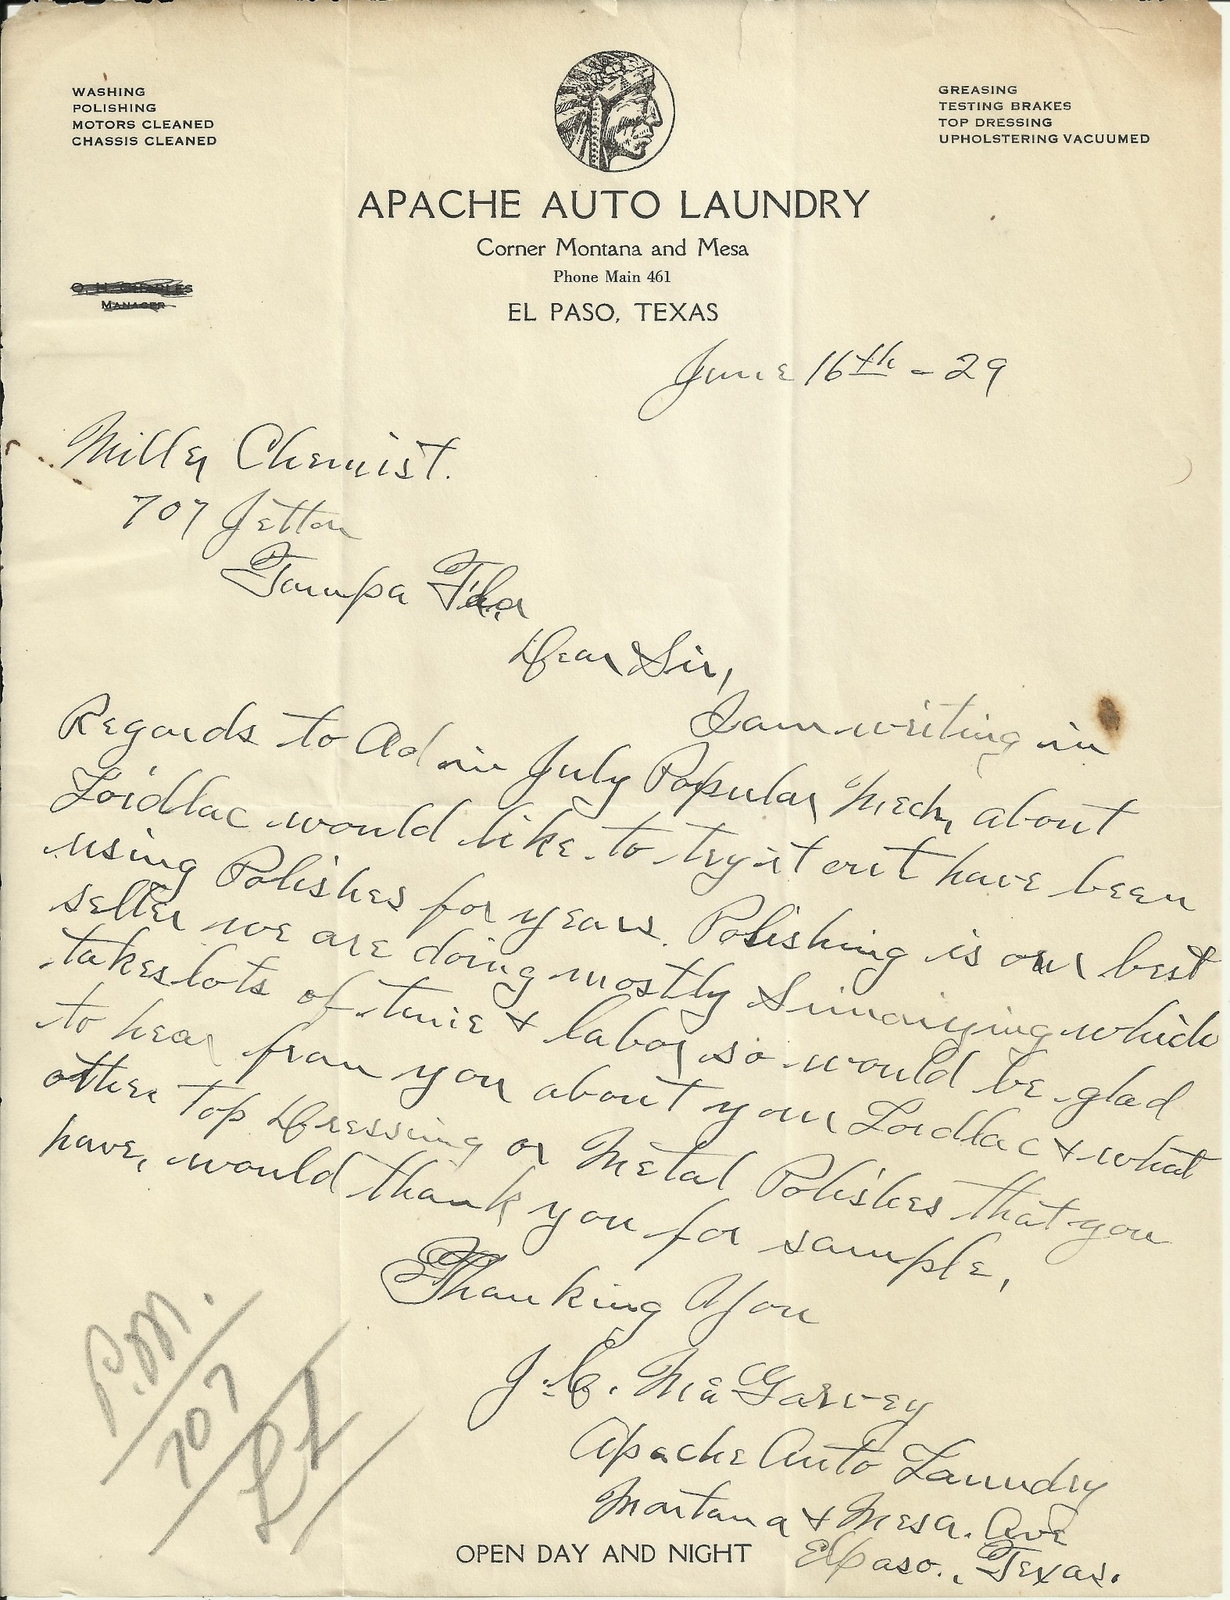 WASHING
POLISHING
MOTORS CLEANED
CHASSIS CLEANED
GREASING
TESTING BRAKES
TOP DRESSING
UPHOLSTERING VACUUMED
APACHE AUTO LAUNDRY
Corner Montana and Mesa
Phone Main 461
EL PASO, TEXAS
MANAGER
June 16th - 29
Miller Chemist.
707 Jetton
Tampa Fla
Dear Sir,
I am writing in
Regards to Ad in July Popular Mech, about
Loidlac would like to try it out have been
using Polishes for years. Polishing is our best
seller we are doing mostly Simonizing which
takes lots of time & labor so would be glad
to hear from you about your Loidlac & what
other Top Dressing or Metal Polishes that you
have, would thank you for sample,
Thanking You
J.C. McGarvey
Apache Auto Laundry
Montana & Mesa. Ave
El Paso., Texas.
P.M.
707
OPEN DAY AND NIGHT